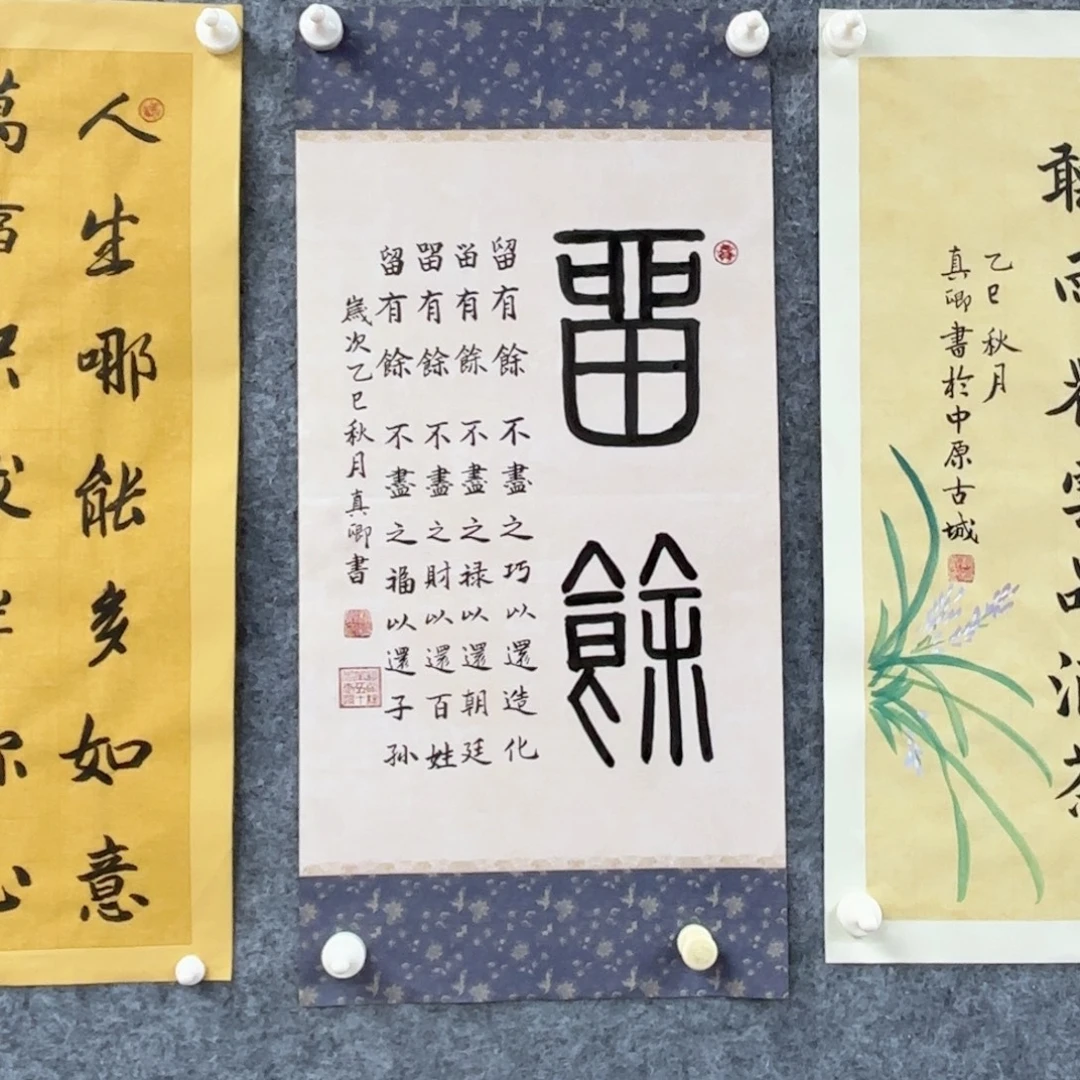 人生哪能多如意
留餘
留有餘不盡之巧以還造化
留有餘不盡之禄以還朝廷
留有餘不盡之財以還百姓
留有餘不盡之福以還子孙
歲次乙巳秋月真卿書
乙巳秋月
真卿書於中原古城